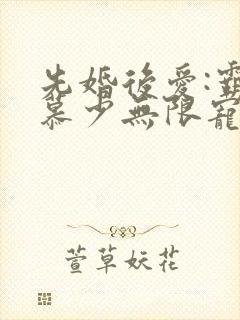 先婚後愛:霸
慕少無限寵
萱草妖花